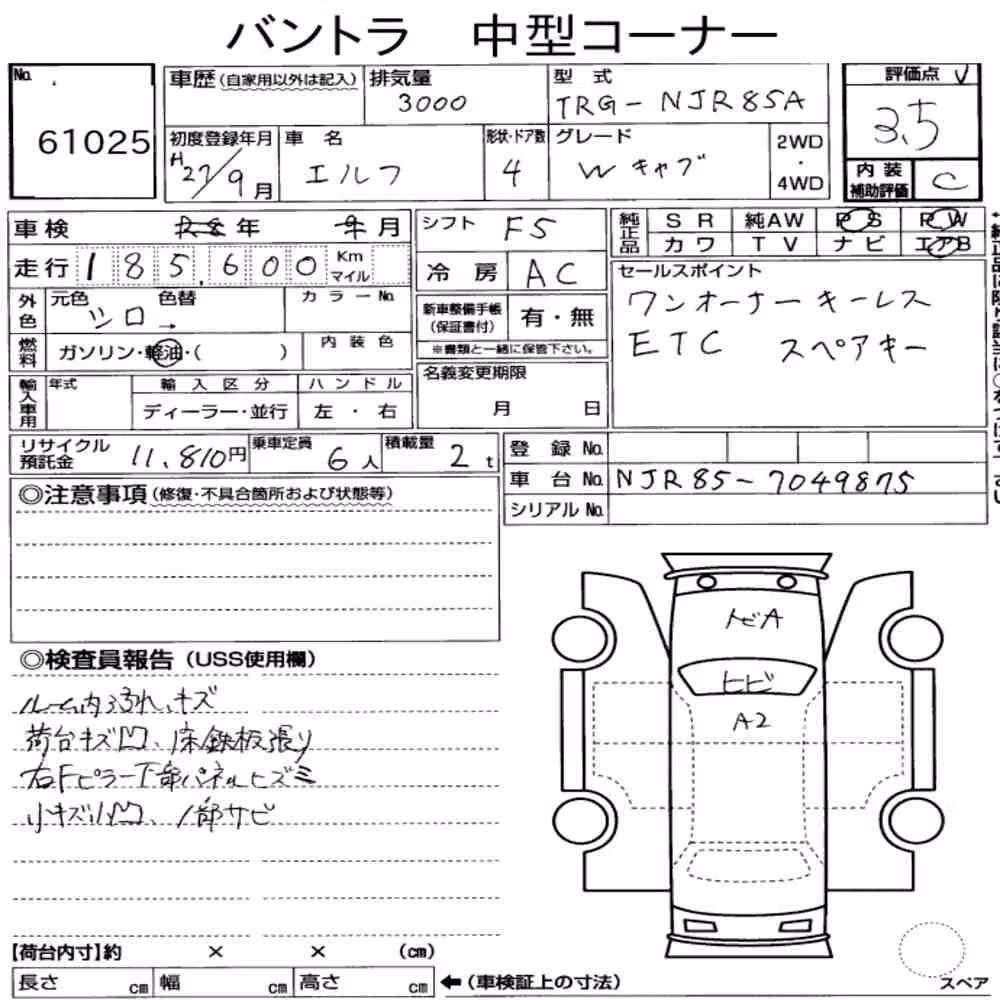 バントラ 中型コーナー
No. 61025
車歴(自家用以外は記入)
排気量 3000
型式 TRG-NJR85A
評価点 3.5
初度登録年月 H27/9月
車名 エルフ
形状・ドア数 4
グレード Wキャブ
2WD・4WD
内装補助評価 C
車検 28年 9月
シフト F5
純正品 SR 純AW PS PW
カワ TV ナビ エアB
走行 185,600 Km マイル
冷房 AC
セールスポイント
ワンオーナー キーレス
ETC スペアキー
外色 元色 シロ→ 色替 カラーNo.
新車整備手帳(保証書付) 有・無
※書類と一緒に保管下さい。
燃料 ガソリン・軽油・( ) 内装色
名義変更期限 月 日
輸入車用 年式 輸入区分 ハンドル
ディーラー・並行 左・右
リサイクル預託金 11,810円
乗車定員 6人
積載量 2t
登録No.
車台No. NJR85-7049875
シリアルNo.
◎注意事項(修復・不具合箇所および状態等)
トビA
ヒビ
A2
◎検査員報告(USS使用欄)
ルーム内汚れ、キズ
荷台キズ凹、床鉄板張り
右Fピラー下部パネルヒズミ
小キズ小凹、1部サビ
【荷台内寸】約 × × (cm)
長さ cm 幅 cm 高さ cm ←(車検証上の寸法)
スペア